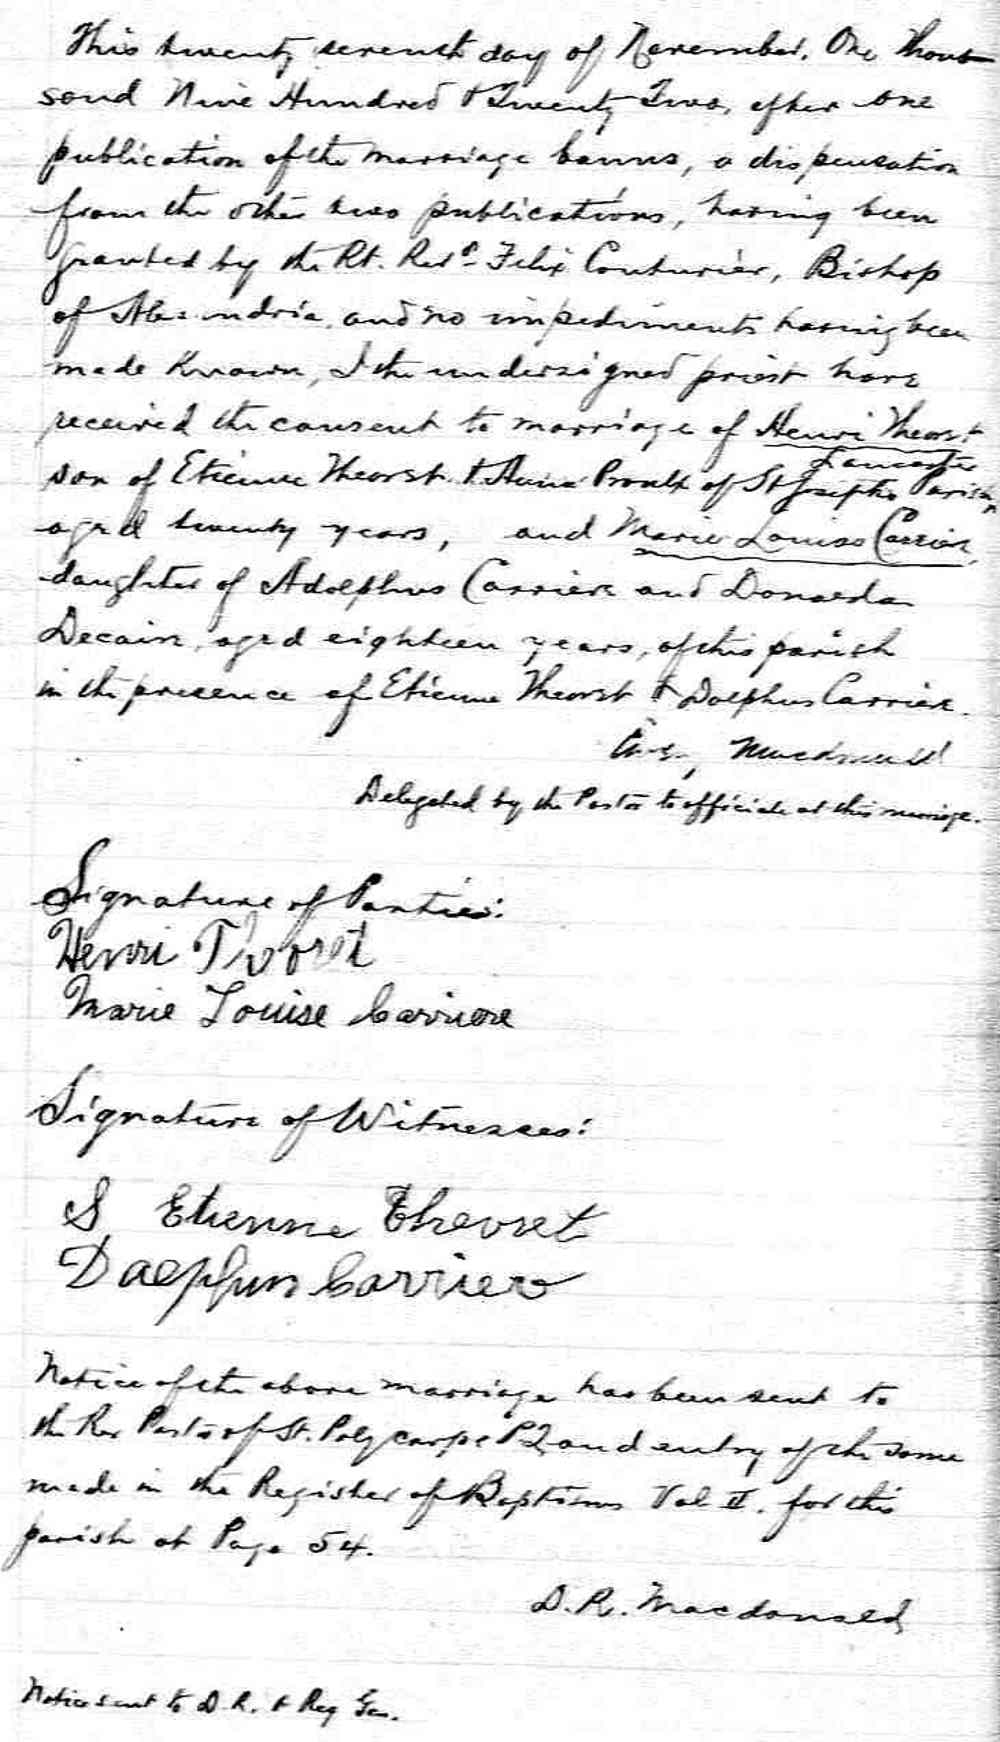 This twenty seventh day of November, One Thou-
sand Nine Hundred & Twenty Two, after one
publication of the marriage banns, a dispensation
from the other two publications, having been
granted by the Rt. Revd. Felix Couturier, Bishop
of Alexandria, and no impediments having been
made known, I the undersigned priest have
received the consent to marriage of Henri Theorst
Lancaster
son of Etienne Theorst & Anna Proulx of St Josephs Parish,
aged twenty years, and Marie Louise Carriere,
daughter of Adolphus Carriere and Donaeda
Decaire, aged eighteen years, of this parish
in the presence of Etienne Theorst & Dolphus Carriere.
Macdonald
Delegated by the Pastor to officiate at this marriage.
Signature of Parties:
Henri Thorst
Marie Louise Carriere
Signature of Witnesses:
S Etienne Thevret
Daephun Carrier
Notice of the above marriage has been sent to
the Rev Pastor of St. Polycarpe P2 and entry of the same
made in the Register of Baptisms Vol II. for this
parish at Page 54.
D.R. Macdonald
Notice sent to D.R. & Reg Gen.